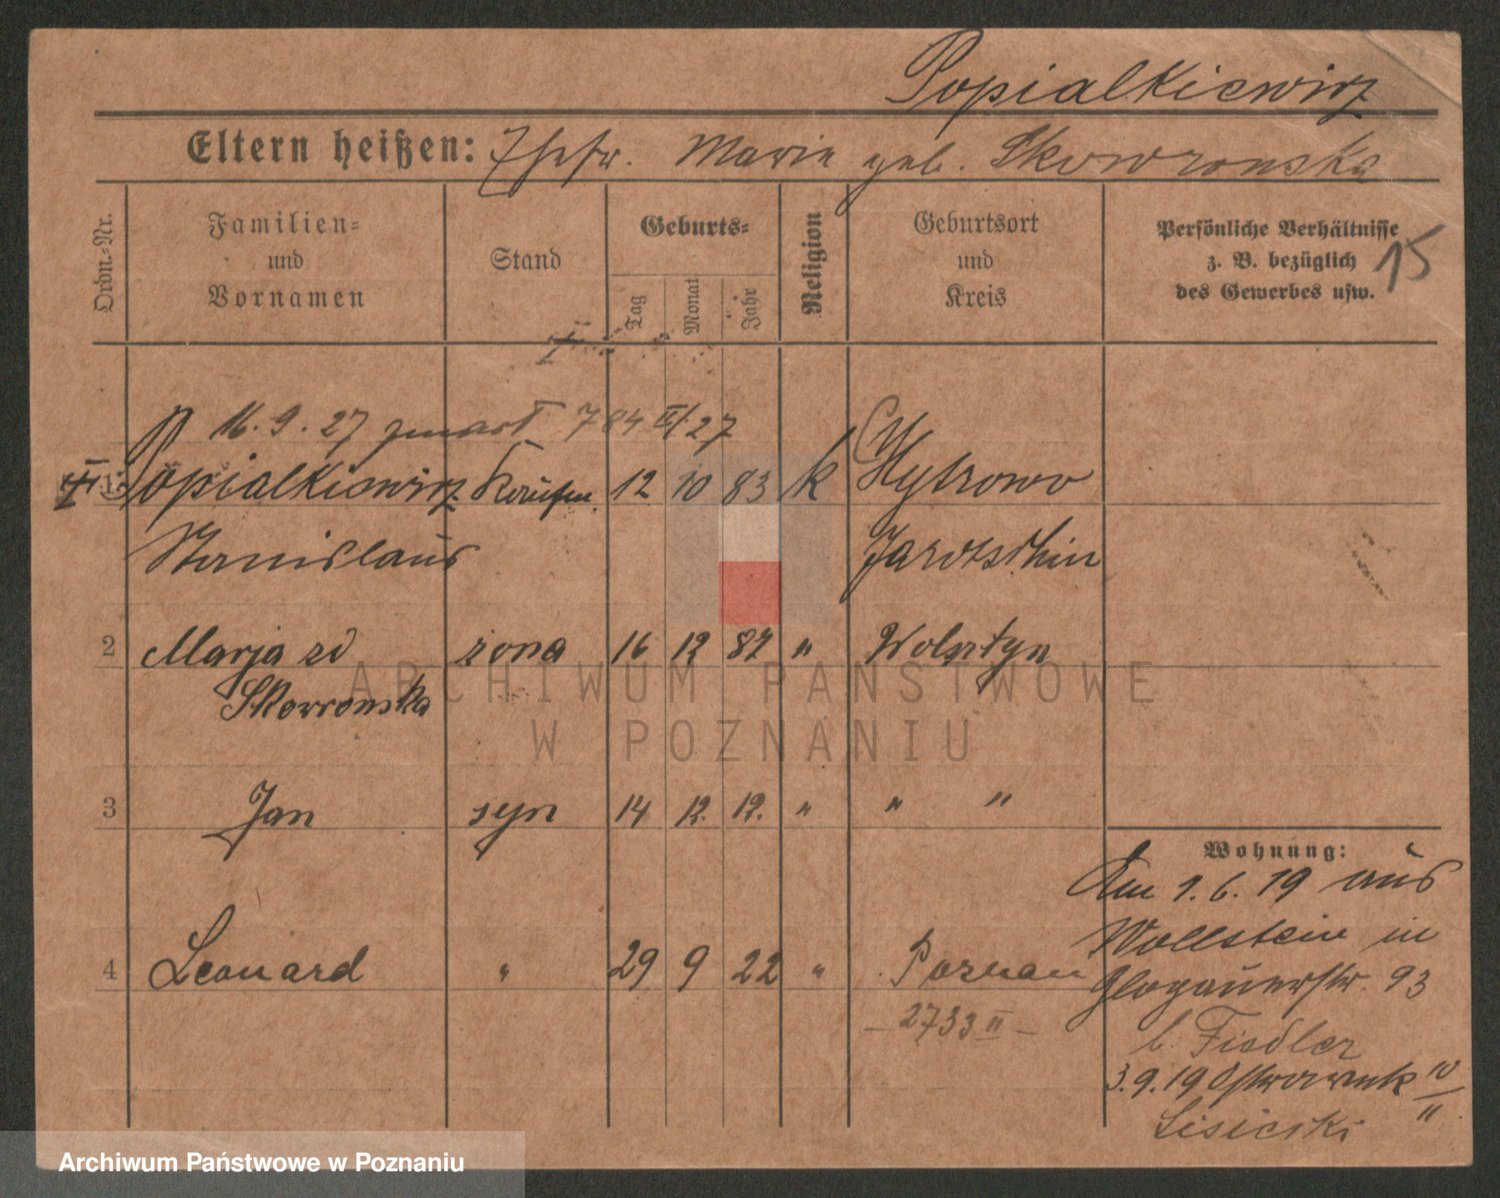 Popialkiewicz
Eltern heißen: Ehefr. Marie geb. Skowronska
Ordn.-Nr.
Familien-
und
Vornamen
Stand
Geburts-
Tag
Monat
Jahr
Religion
Geburtsort
und
Kreis
Persönliche Verhältnisse
z. B. bezüglich
des Gewerbes usw.
15
16. 9. 27 zmarł 784 II/27
1 Popialkiewicz Kaufm. 12 10 83 k Chytrowo
Stanislaus Jarotschin
2 Marja zd żona 16 12 87 " Wolsztyn
Skowronska
3 Jan syn 14 12. 12. " " "
4 Leonard " 29 9 22 " Poznan
- 2733 II -
Wohnung:
Am 1. 6. 19 aus
Wollstein in
Glogauerstr. 93
b. Fiedler
3. 9. 19 IV/II
Lisiecki
ARCHIWUM PAŃSTWOWE
W POZNANIU
Archiwum Państwowe w Poznaniu